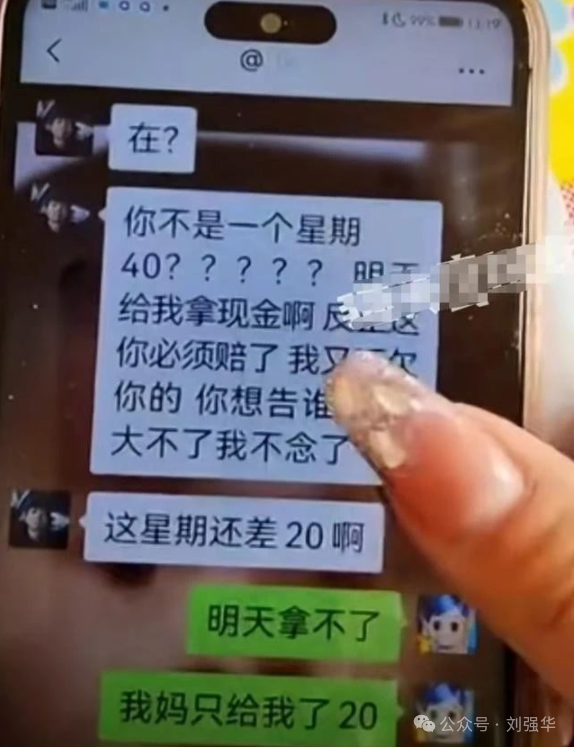 99% 13:19
@
在?
你不是一个星期
40?????
给我拿现金啊
你必须赔了 我又
你的 你想告谁
大不了我不念了
这星期还差20啊
明天拿不了
我妈只给我了20
公众号·刘强华